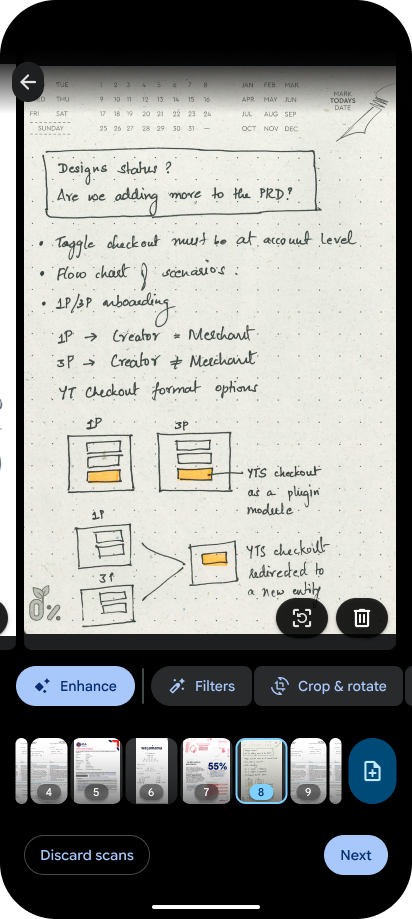 TUE 1 2 3 4 5 6 7 8 JAN FEB MAR
WED THU 9 10 11 12 13 14 15 16 APR MAY JUN
FRI SAT 17 18 19 20 21 22 23 24 JUL AUG SEP
SUNDAY 25 26 27 28 29 30 31 — OCT NOV DEC
MARK
TODAYS
DATE
Designs status?
Are we adding more to the PRD?
• Toggle checkout must be at account level
• Flow chart of scenarios.
• 1P/3P onboarding
1P → Creator = Merchant
3P → Creator ≠ Merchant
YT Checkout format options
1P 3P
YTS checkout
as a plugin
module
1P
3P
YTS checkout
redirected to
a new entity
0%
Enhance
Filters
Crop & rotate
4
5
6
7
55%
8
9
Discard scans
Next